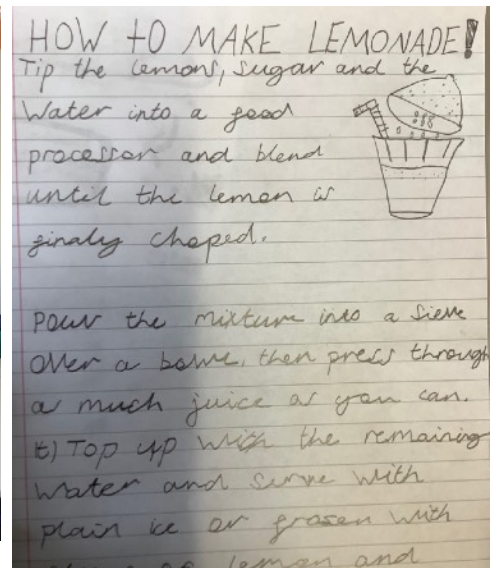 HOW tO MAKE LEMONADE!
Tip the lemons, sugar and the
Water into a food
processor and blend
until the lemon is
finaly choped.
Pour the mixture into a sieve
Over a bowl, then press through
as much juice as you can.
t) Top up with the remaining
Water and serve with
plain ice or frosen with
lemon and